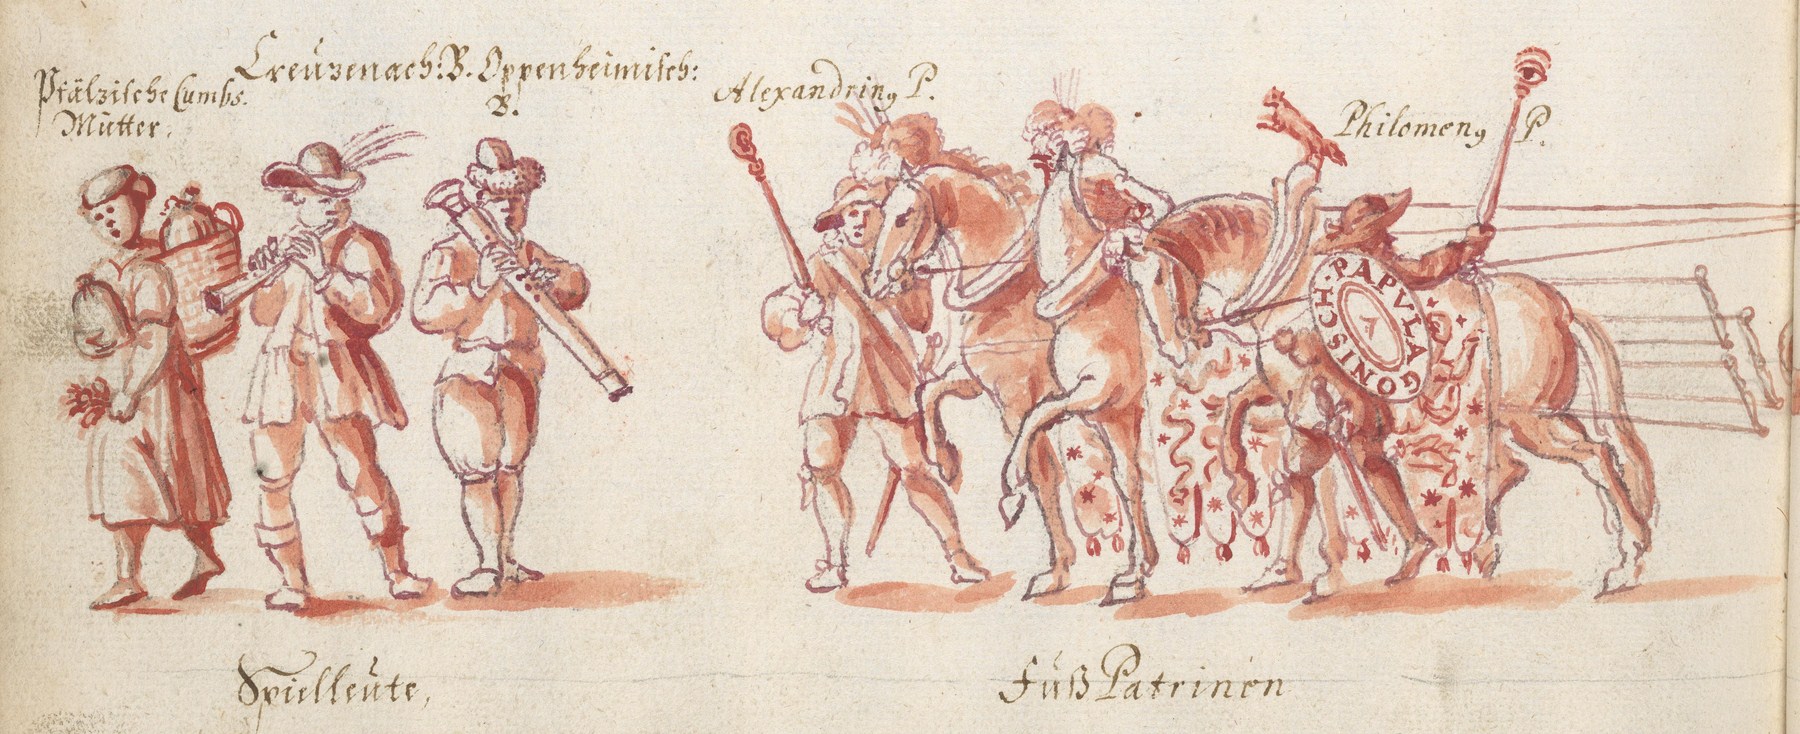 Pfälzische Cumbs.
Mütter.
Creützenach: B. Oppenheimisch:
B.
Alexandrinꝰ P.
Philomenꝰ P.
PAPVLAGONISCH.
Spielleüte,
Füß Patrinen